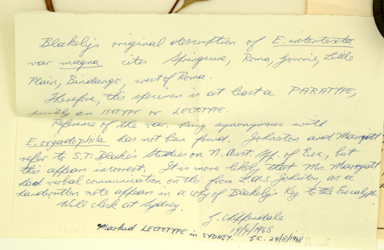 Blakely's original description of E. intertexta
var magna cites Springvue, Roma, Gowrie, Little
Plain, Bindango, west of Roma.
Therefore, this specimen is at least a PARATYPE,
possibly an ISOTYPE or LECTOTYPE.
Reference of the var. being synonymous with
E. orgadophila has not been found. Johnston and Marryatt
refer to S.T. Blake's Studies on N. Aust. Spp. of Euc., but
this appears incorrect. It is more likely that Mr Marryatt
had verbal communication on this from L.A.S. Johnson, as a
handwritten note appears in a copy of Blakely's Key to the Eucalypts.
Will check at Sydney.
G. Chippendale
19/4/1968
Marked LECTOTYPE in SYDNEY. GC. 29/5/1968